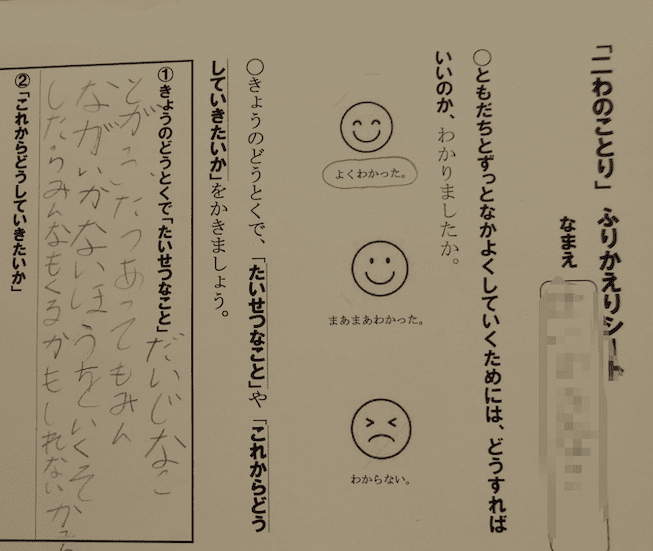 「二わのことり」 ふりかえりシート
なまえ
○ともだちとずっとなかよくしていくためには、どうすれば
いいのか、わかりましたか。
よくわかった。
まあまあわかった。
わからない。
○きょうのどうとくで、「たいせつなこと」や「これからどう
していきたいか」をかきましょう。
①きょうのどうとくで「たいせつなこと」
だいじなこ
とが二つあってもみん
ながいかないほうをいくそ
したらみんなもくるかもしれないから
②「これからどうしていきたいか」